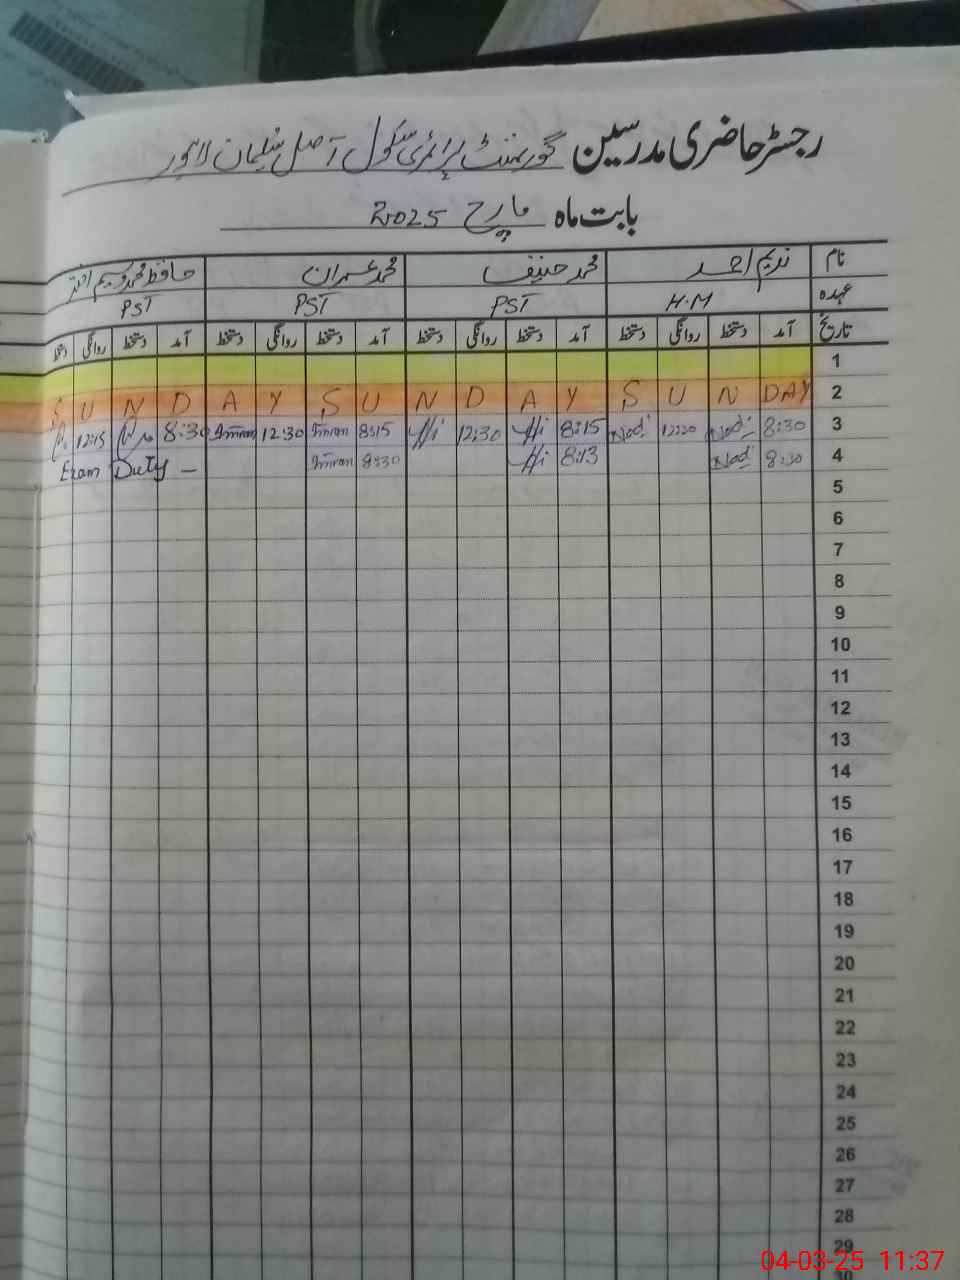 رجسٹر حاضری مدرسین گورنمنٹ پرائمری سکول آصل سلیمان لاہور
بابت ماہ مارچ 2025
نام ندیم احمد محمد حنیف محمد عمران حافظ محمد وسیم اختر
عہدہ H.M PST PST PST
تاریخ آمد دستخط روانگی دستخط آمد دستخط روانگی دستخط آمد دستخط روانگی دستخط آمد دستخط روانگی دستخط
1
S U N D A Y S U N D A Y S U N DAY 2
12:15 8:30 Imran 12:30 Imran 8:15 Hi 12:30 Hi 8:15 Nad 12:20 Nad 8:30 3
Exam Duty — Imran 8:30 Hi 8:13 Nad 8:30 4
5
6
7
8
9
10
11
12
13
14
15
16
17
18
19
20
21
22
23
24
25
26
27
28
29
30
04-03-25 11:37